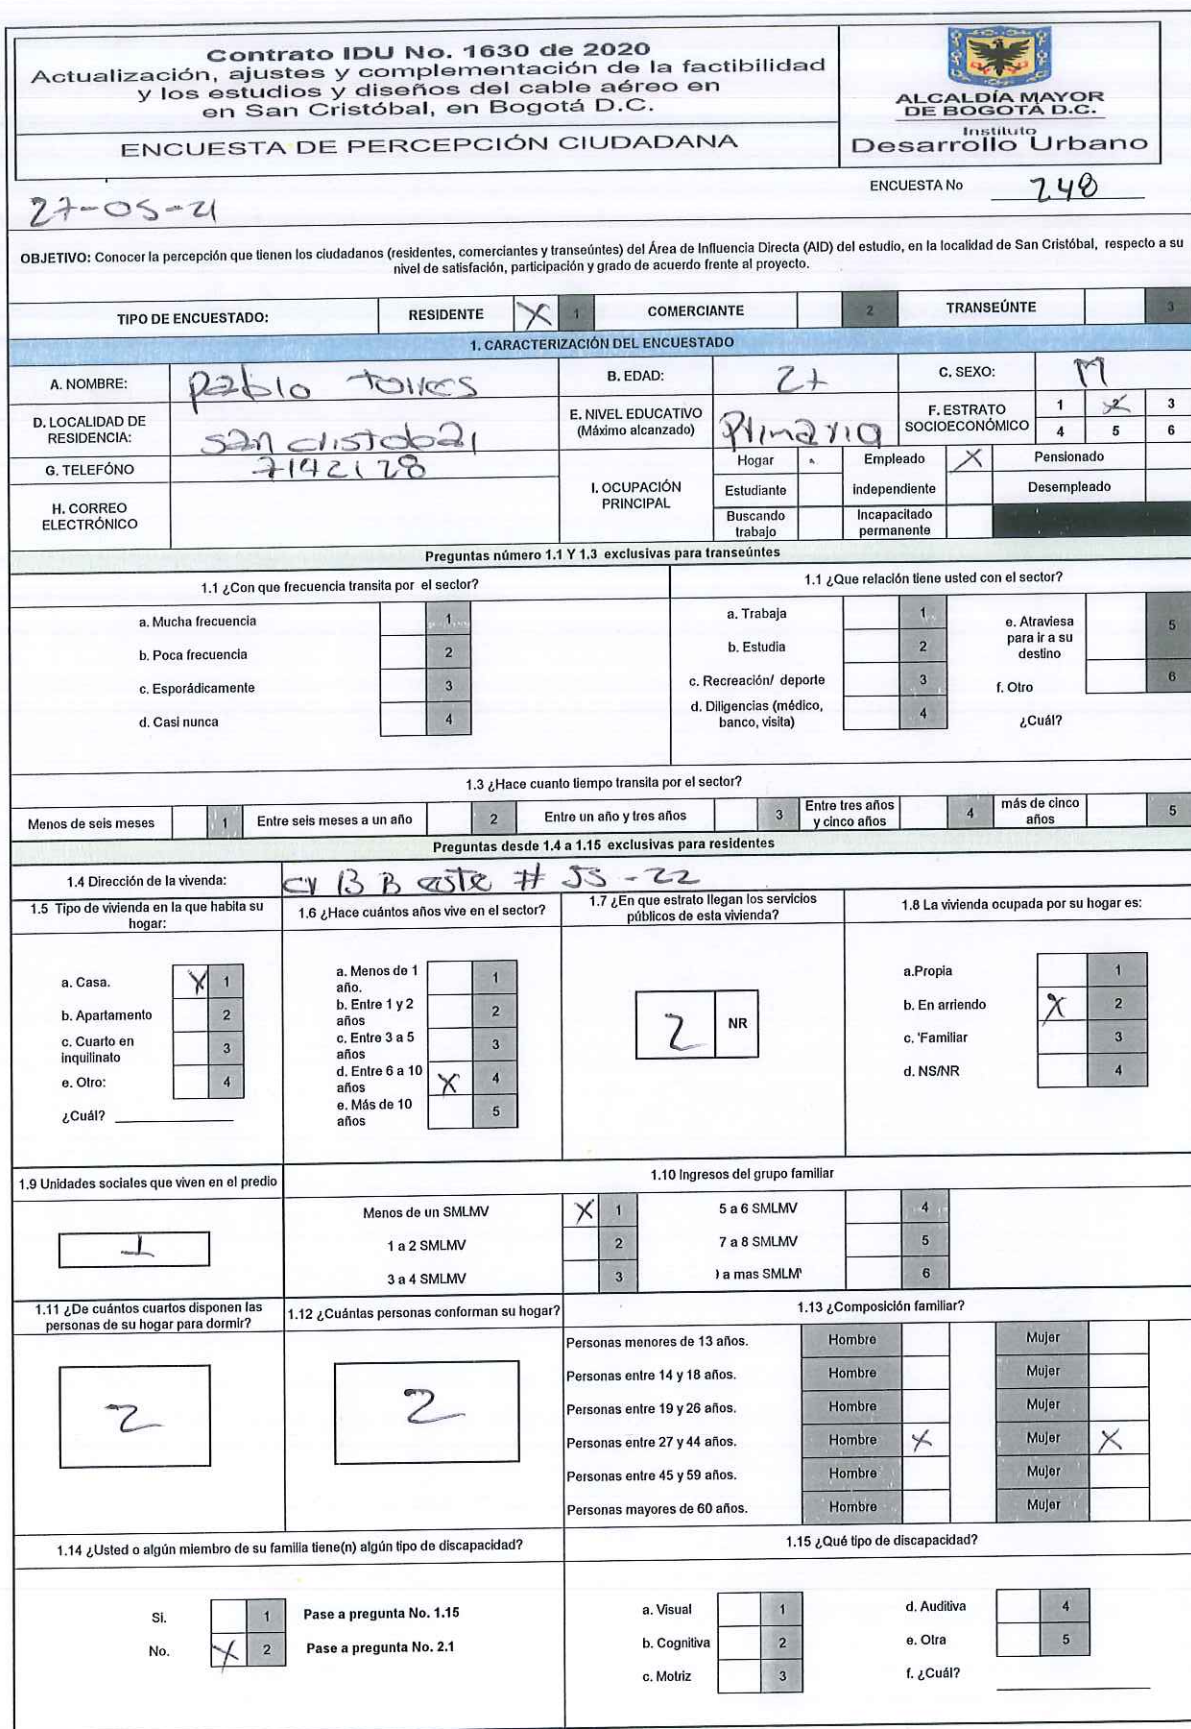 Contrato IDU No. 1630 de 2020
Actualización, ajustes y complementación de la factibilidad
y los estudios y diseños del cable aéreo en
en San Cristóbal, en Bogotá D.C.
ENCUESTA DE PERCEPCIÓN CIUDADANA
ALCALDÍA MAYOR
DE BOGOTÁ D.C.
Instituto
Desarrollo Urbano
ENCUESTA No 248
27-05-21
OBJETIVO: Conocer la percepción que tienen los ciudadanos (residentes, comerciantes y transeúntes) del Área de Influencia Directa (AID) del estudio, en la localidad de San Cristóbal, respecto a su
nivel de satisfacción, participación y grado de acuerdo frente al proyecto.
TIPO DE ENCUESTADO: RESIDENTE X 1 COMERCIANTE 2 TRANSEÚNTE 3
1. CARACTERIZACIÓN DEL ENCUESTADO
A. NOMBRE: Pablo Torres B. EDAD: 27 C. SEXO: M
D. LOCALIDAD DE
RESIDENCIA: San Cristobal
E. NIVEL EDUCATIVO
(Máximo alcanzado) Primaria
F. ESTRATO
SOCIOECONÓMICO
1 X2 3
4 5 6
G. TELEFÓNO 7142128
H. CORREO
ELECTRÓNICO
I. OCUPACIÓN
PRINCIPAL
Hogar Empleado X Pensionado
Estudiante independiente Desempleado
Buscando
trabajo
Incapacitado
permanente
Preguntas número 1.1 Y 1.3 exclusivas para transeúntes
1.1 ¿Con que frecuencia transita por el sector?
a. Mucha frecuencia 1
b. Poca frecuencia 2
c. Esporádicamente 3
d. Casi nunca 4
1.1 ¿Que relación tiene usted con el sector?
a. Trabaja 1
b. Estudia 2
c. Recreación/ deporte 3
d. Diligencias (médico,
banco, visita) 4
e. Atraviesa
para ir a su
destino 5
f. Otro 6
¿Cuál?
1.3 ¿Hace cuanto tiempo transita por el sector?
Menos de seis meses 1 Entre seis meses a un año 2 Entre un año y tres años 3 Entre tres años
y cinco años 4 más de cinco
años 5
Preguntas desde 1.4 a 1.15 exclusivas para residentes
1.4 Dirección de la vivenda: Cr 13 B este # 55 - 22
1.5 Tipo de vivienda en la que habita su
hogar:
a. Casa. X 1
b. Apartamento 2
c. Cuarto en
inquilinato 3
e. Otro: 4
¿Cuál?
1.6 ¿Hace cuántos años vive en el sector?
a. Menos de 1
año. 1
b. Entre 1 y 2
años 2
c. Entre 3 a 5
años 3
d. Entre 6 a 10
años X 4
e. Más de 10
años 5
1.7 ¿En que estrato llegan los servicios
públicos de esta vivienda?
2 NR
1.8 La vivienda ocupada por su hogar es:
a.Propia 1
b. En arriendo X 2
c. 'Familiar 3
d. NS/NR 4
1.9 Unidades sociales que viven en el predio
1
1.10 Ingresos del grupo familiar
Menos de un SMLMV X 1 5 a 6 SMLMV 4
1 a 2 SMLMV 2 7 a 8 SMLMV 5
3 a 4 SMLMV 3 a mas SMLM 6
1.11 ¿De cuántos cuartos disponen las
personas de su hogar para dormir?
2
1.12 ¿Cuántas personas conforman su hogar?
2
1.13 ¿Composición familiar?
Personas menores de 13 años. Hombre Mujer
Personas entre 14 y 18 años. Hombre Mujer
Personas entre 19 y 26 años. Hombre Mujer
Personas entre 27 y 44 años. Hombre X Mujer X
Personas entre 45 y 59 años. Hombre Mujer
Personas mayores de 60 años. Hombre Mujer
1.14 ¿Usted o algún miembro de su familia tiene(n) algún tipo de discapacidad?
Si. 1 Pase a pregunta No. 1.15
No. X 2 Pase a pregunta No. 2.1
1.15 ¿Qué tipo de discapacidad?
a. Visual 1 d. Auditiva 4
b. Cognitiva 2 e. Otra 5
c. Motriz 3 f. ¿Cuál?